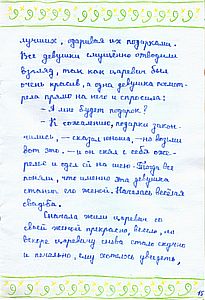 лучших, одаривая их подарками.
Все девушки смущённо отводили
взгляд, так как царевич был
очень красив, а одна девушка посмот-
рела прямо на него и спросила:
– А мне будет подарок?
– К сожалению, подарки закон-
чились, – сказал юноша, – но возьми
вот это. – и он снял с себя оже-
релье и одел ей на шею. Тогда все
поняли, что именно эта девушка
станет его женой. Началась весёлая
свадьба.
Сначала жили царевич со
своей женой прекрасно, весело, но
вскоре царевичу снова стало скучно
и печально, ему хотелось увидеть,
15